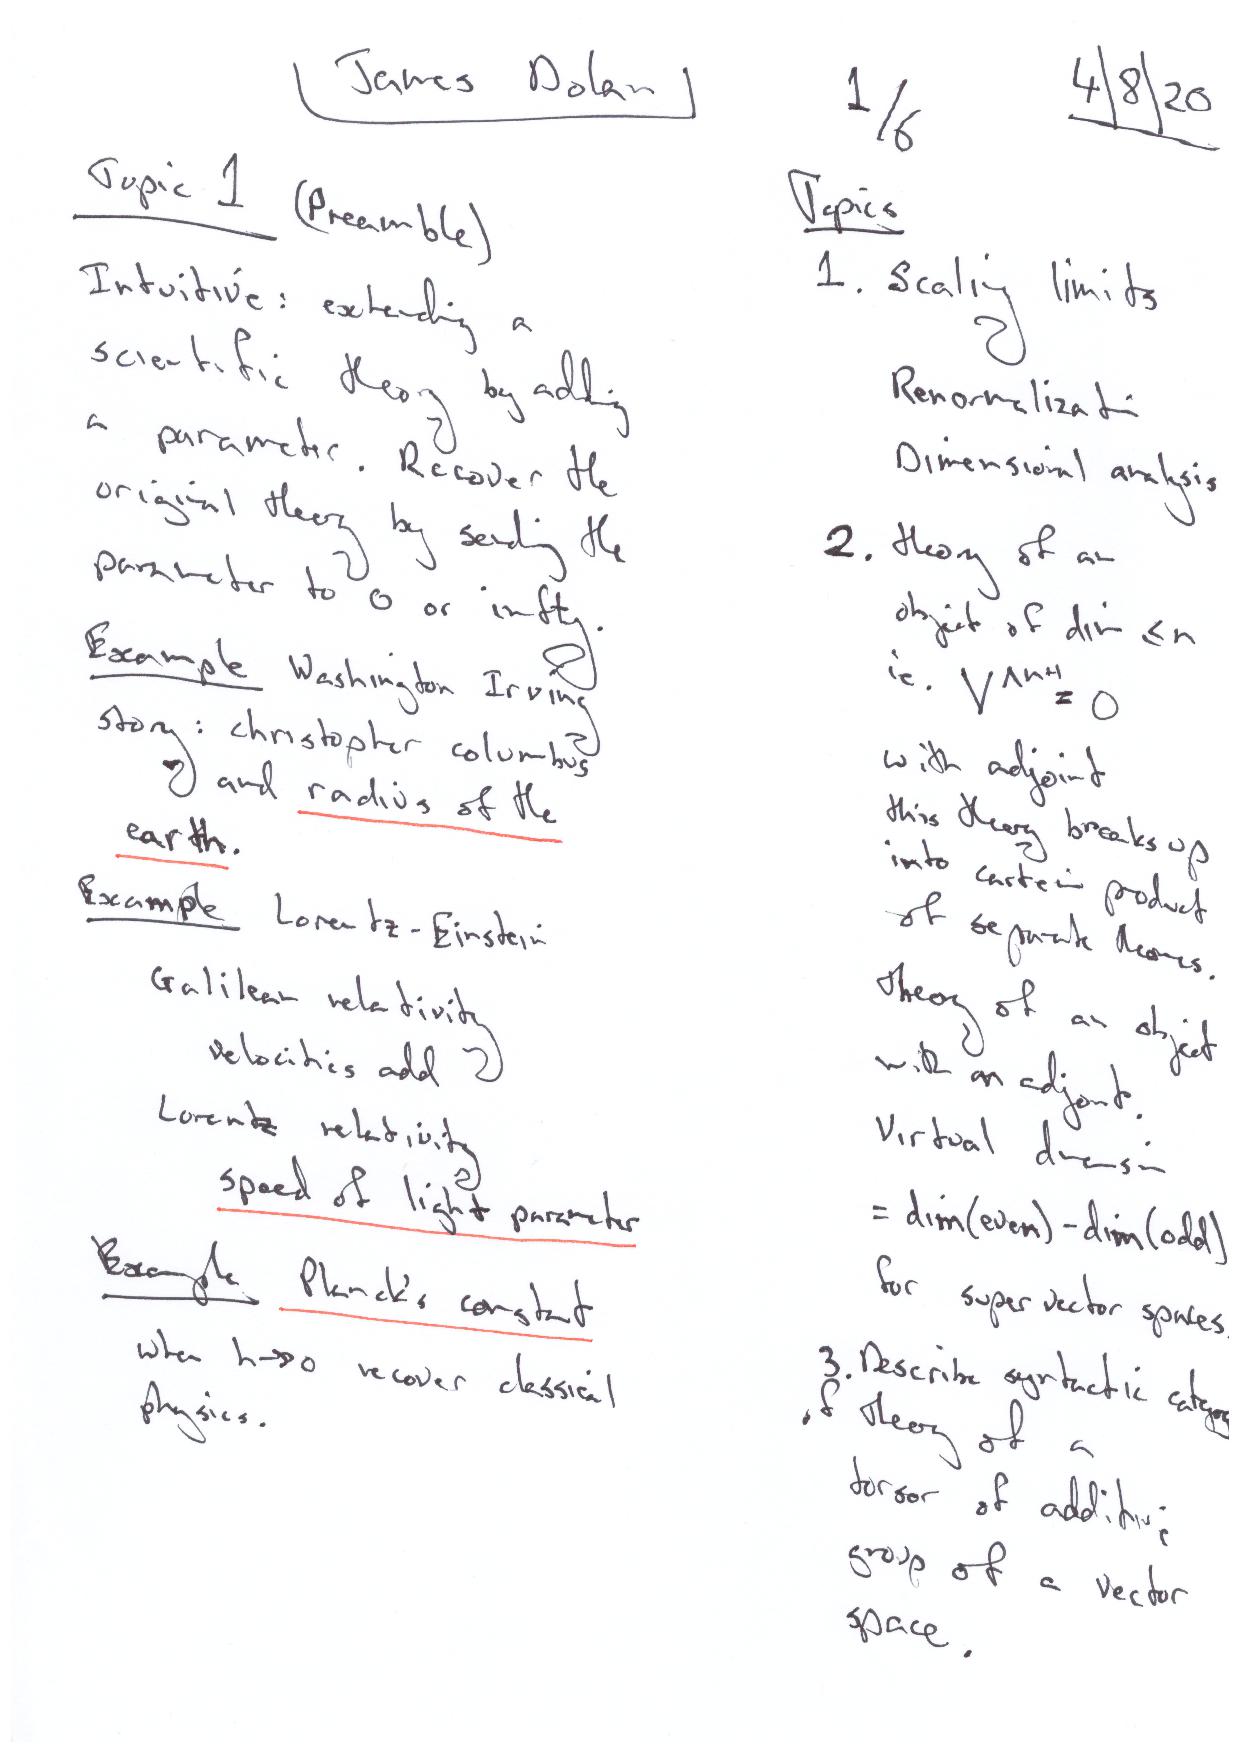 James Dolan
1/6
4/8/20
Topic 1 (Preamble)
Intuitive: extending a
scientific theory by adding
a parameter. Recover the
original theory by sending the
parameter to 0 or infty.
Example Washington Irving
story: christopher columbus
and radius of the
earth.
Example Lorentz-Einstein
Galilean relativity
velocities add
Lorentz relativity
speed of light parameter
Example Planck's constant
when h→0 recover classical
physics.
Topics
1. Scaling limits
Renormalization
Dimensional analysis
2. theory of an
object of dim ≤n
ie. V^∧n+1 = 0
with adjoint
this theory breaks up
into cartesian product
of separate theories.
theory of an object
with an adjoint.
Virtual dimension
= dim(even) - dim(odd)
for super vector spaces.
3. Describe syntactic category
of theory of a
torsor of additive
group of a vector
space.